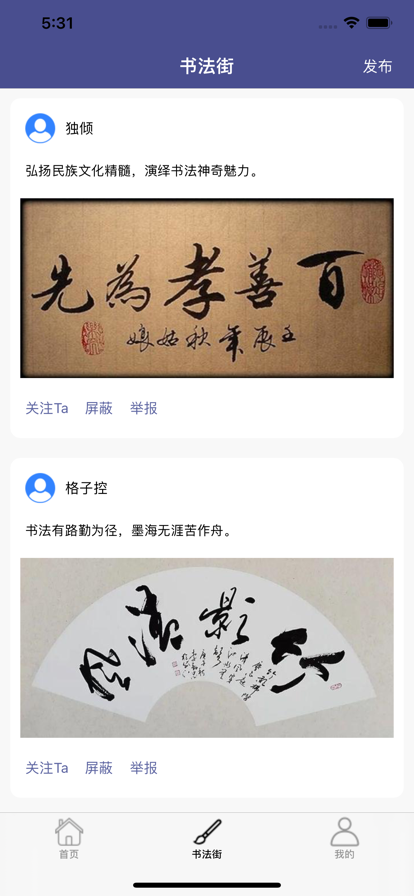 5:31
书法街
发布
独倾
弘扬民族文化精髓，演绎书法神奇魅力。
百善孝為先
壬辰年秋姑娘
关注Ta 屏蔽 举报
格子控
书法有路勤为径，墨海无涯苦作舟。
竹影清
关注Ta 屏蔽 举报
首页
书法街
我的